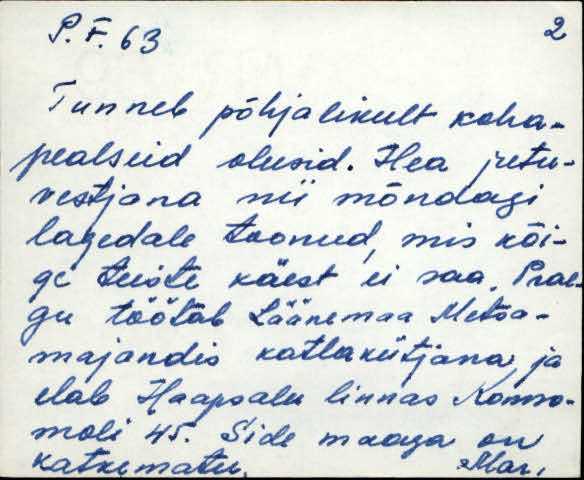 P. F. 63 2
Tunneb põhjalikult koha-
pealseid olusid. Hea jutu-
vestjana nii mõndagi
lagedale toonud, mis kõi-
ge teiste käest ei saa. Prae-
gu töötab Läänemaa Metsa-
majandis katlakütjana ja
elab Haapsalu linnas Komso-
moli 45. Side maaga on
katkematu. Mar.